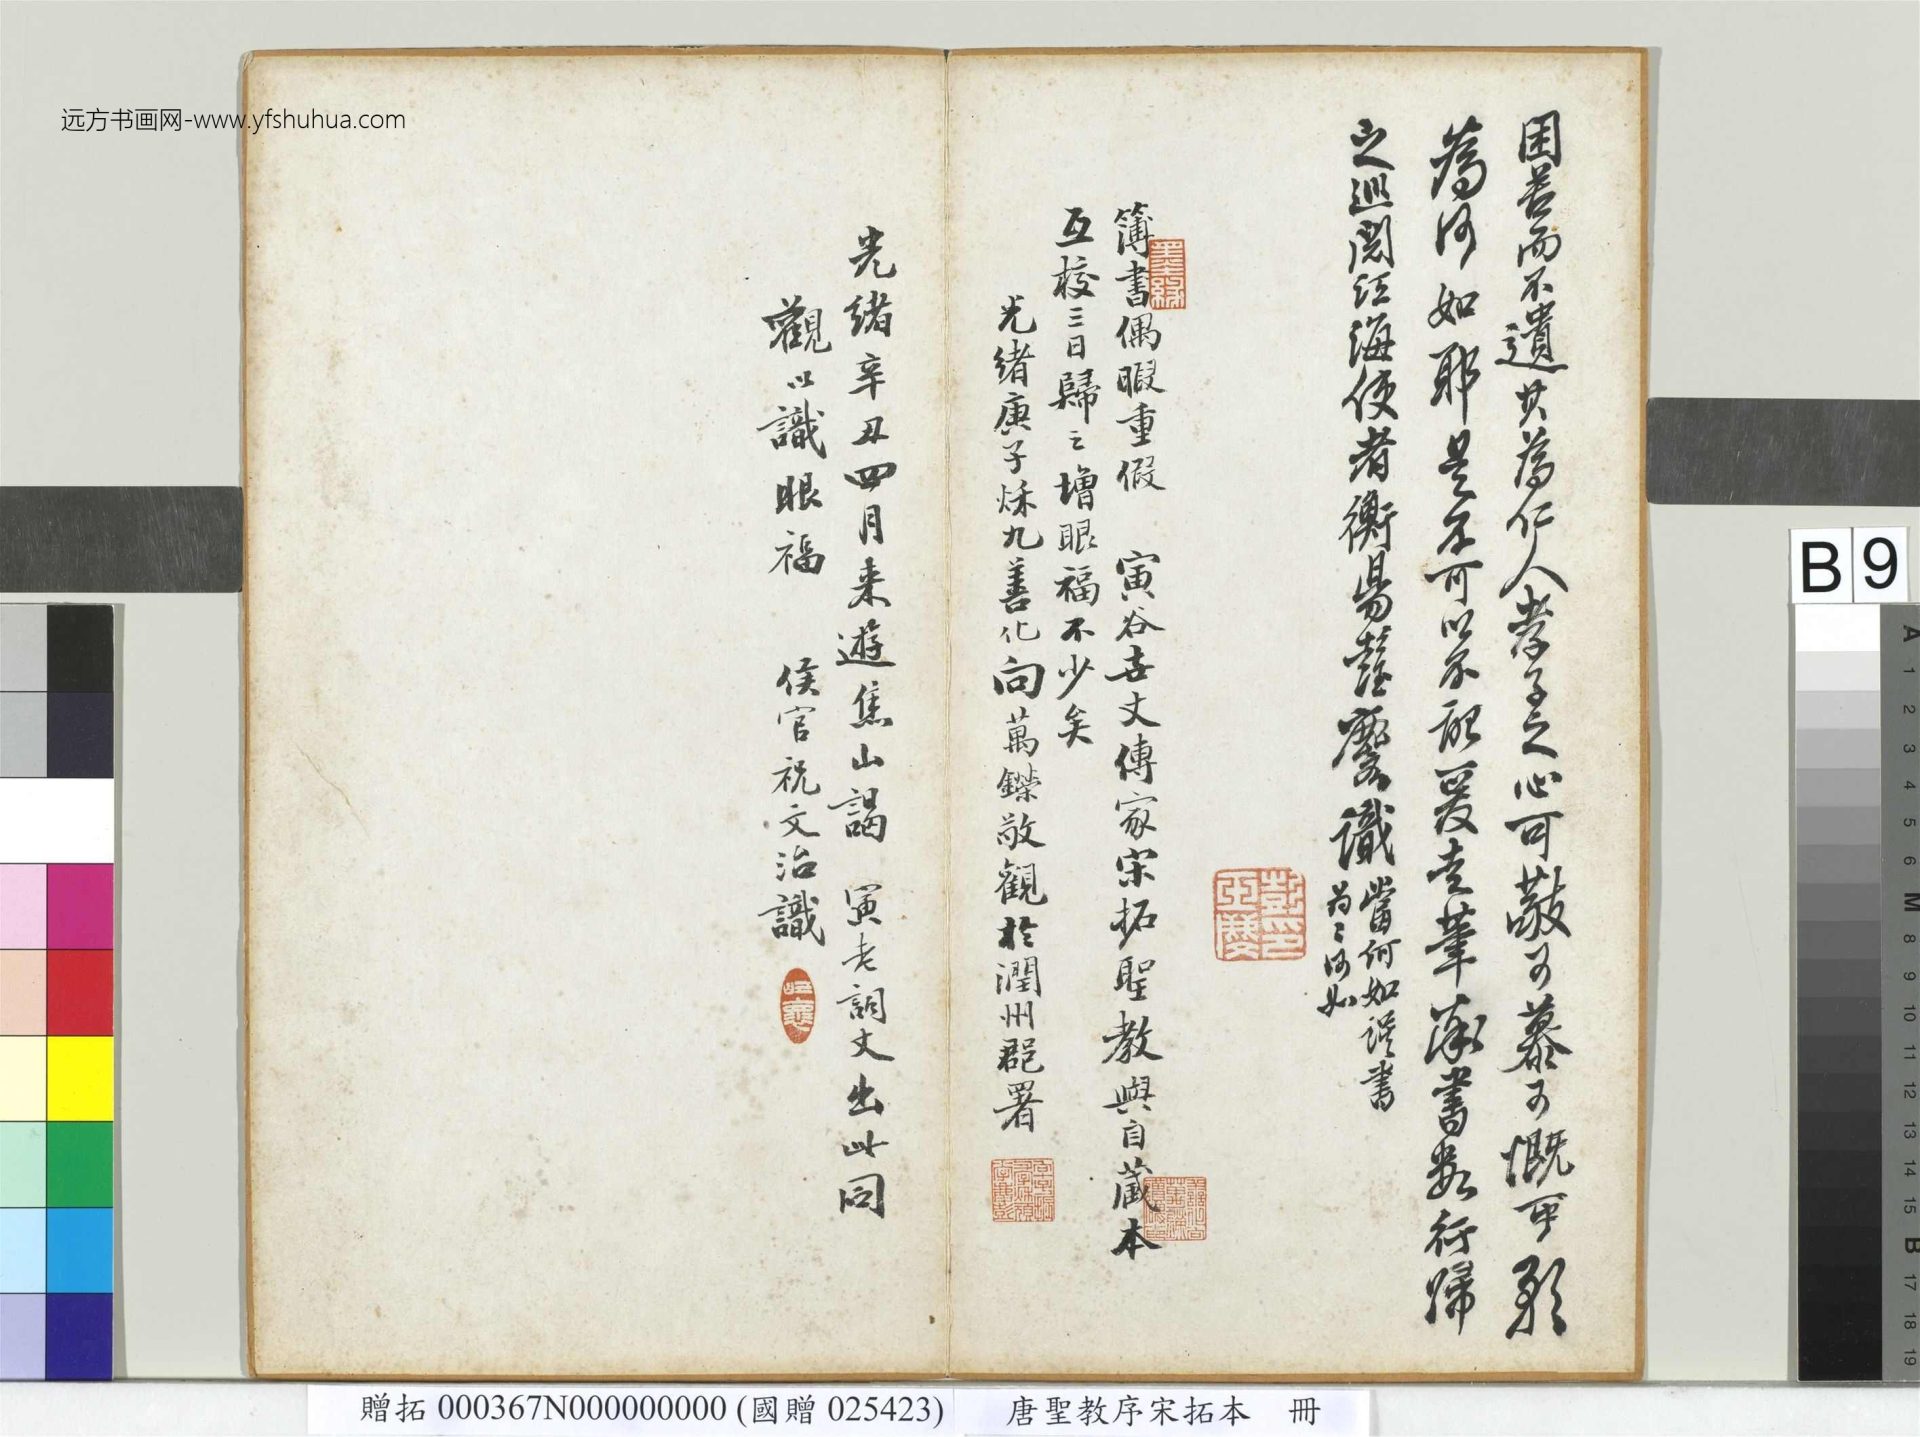 远方书画网-www.yfshuhua.com
困苦而不遺其為仁人孝子之心可敬可慕可慨可
為何如耶是不可以不記爰走筆漫書數行歸
之巡閱江海使者衡昜彭玉麐識當何如誤書
為之何如
簿書偶暇重假 寅谷世丈傳家宋拓聖教與自藏本
互校三日歸之增眼福不少矣
光緒庚子秌九善化向萬鑅敬觀於潤州郡署
光緒辛丑四月来遊焦山謁 寅老詞丈出此同
觀以識眼福 侯官祝文治識
贈拓 000367N000000000 (國贈 025423) 唐聖教序宋拓本 冊
B 9